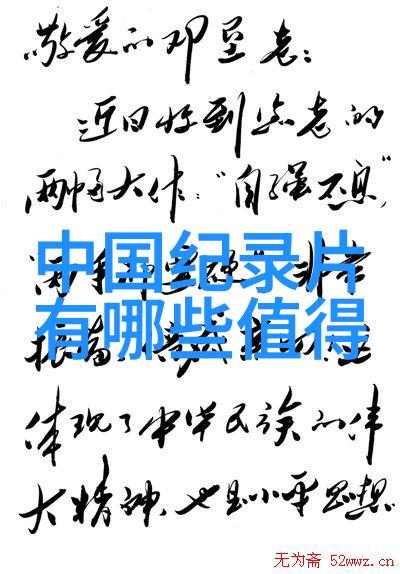 敬爱的邓垦老：
近日收到您老的
两幅大作：“自强不息”
中国纪录片
有哪些值得
体现了中华民族的伟
大精神，也是小平思想
无为斋 52wwz.cn